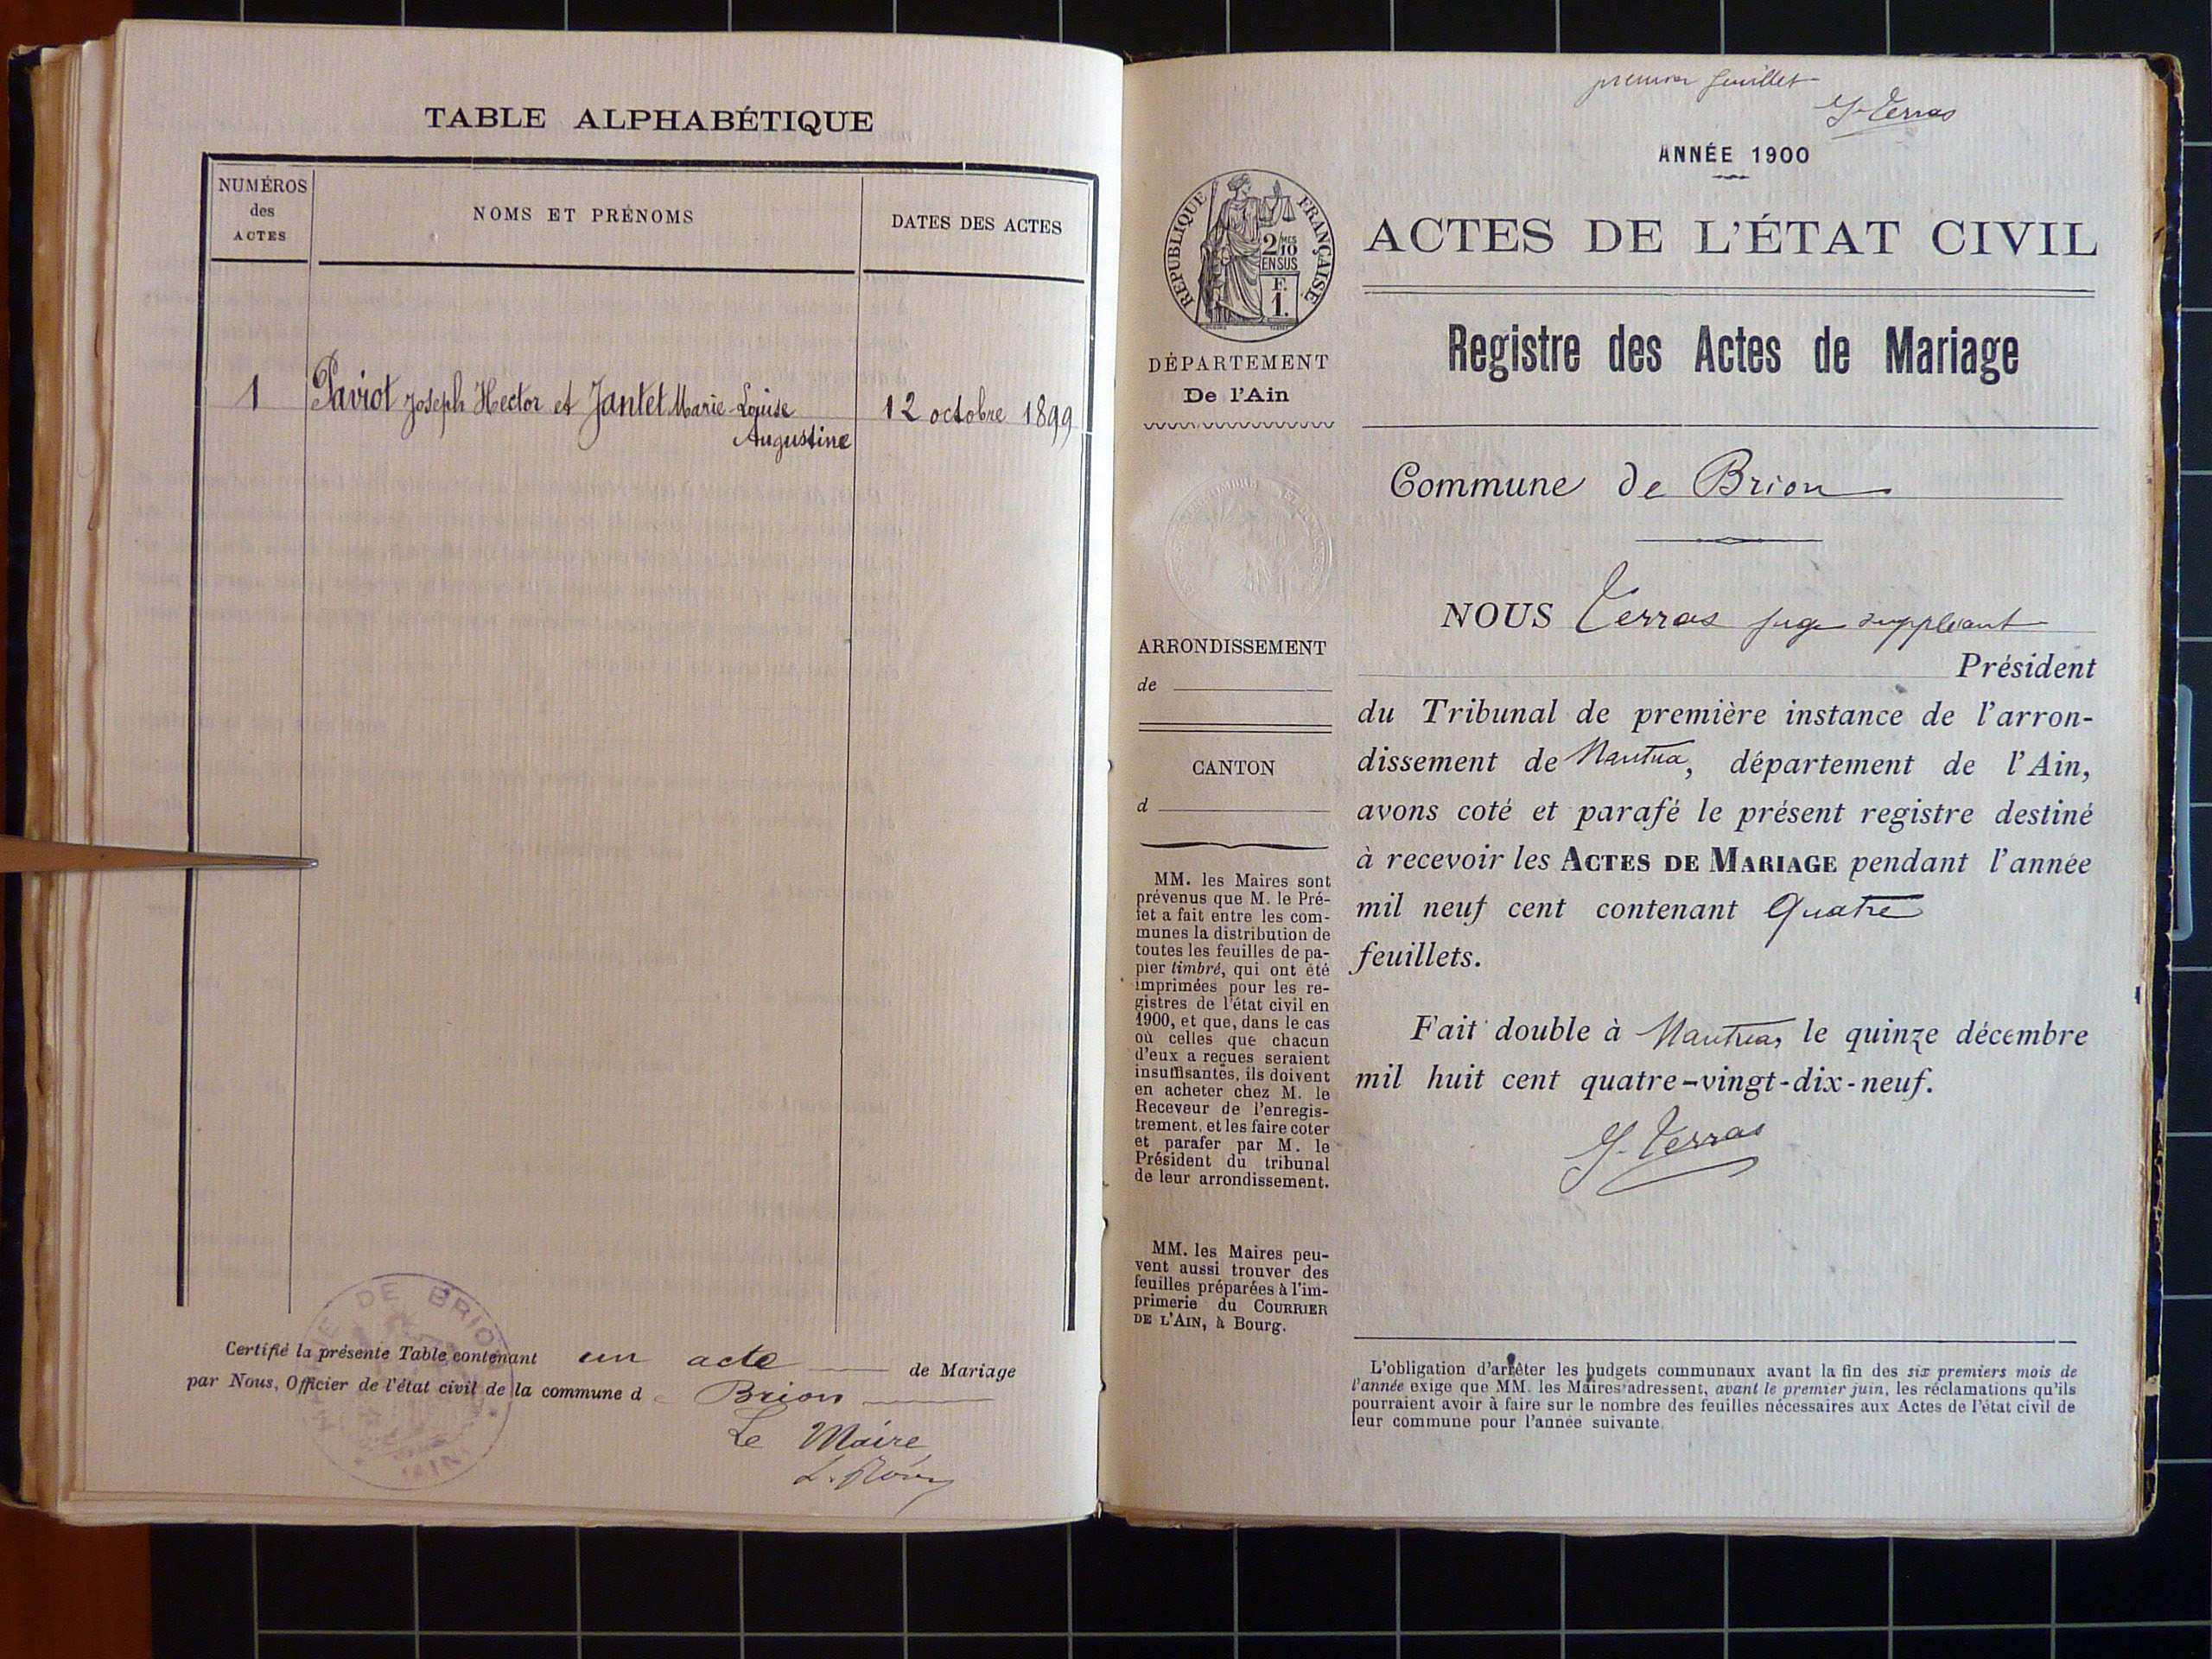 TABLE ALPHABÉTIQUE
NUMÉROS
des
ACTES
NOMS ET PRÉNOMS
DATES DES ACTES
1
Paviot Joseph Hector et Jantet Marie-Louise
Augustine
12 octobre 1899
Certifié la présente Table contenant un acte de Mariage
par Nous, Officier de l'état civil de la commune d e Brion
Le Maire
MAIRIE DE BRION
(AIN)
premier feuillet
G. Terras
ANNÉE 1900
RÉPUBLIQUE FRANÇAISE
2/10
MES
EN SUS
F.
1.
DÉPARTEMENT
De l'Ain
ARRONDISSEMENT
de
CANTON
d
MM. les Maires sont
prévenus que M. le Pré-
fet a fait entre les com-
munes la distribution de
toutes les feuilles de pa-
pier timbré, qui ont été
imprimées pour les re-
gistres de l'état civil en
1900, et que, dans le cas
où celles que chacun
d'eux a reçues seraient
insuffisantes, ils doivent
en acheter chez M. le
Receveur de l'enregis-
trement, et les faire coter
et parafer par M. le
Président du tribunal
de leur arrondissement.
MM. les Maires peu-
vent aussi trouver des
feuilles préparées à l'im-
primerie du COURRIER
DE L'AIN, à Bourg.
ACTES DE L'ÉTAT CIVIL
Registre des Actes de Mariage
Commune de Brion
NOUS Terras juge suppléant
Président
du Tribunal de première instance de l'arron-
dissement de Nantua, département de l'Ain,
avons coté et parafé le présent registre destiné
à recevoir les ACTES DE MARIAGE pendant l'année
mil neuf cent contenant Quatre
feuillets.
Fait double à Nantua, le quinze décembre
mil huit cent quatre-vingt-dix-neuf.
G. Terras
L'obligation d'arrêter les budgets communaux avant la fin des six premiers mois de
l'année exige que MM. les Maires adressent, avant le premier juin, les réclamations qu'ils
pourraient avoir à faire sur le nombre des feuilles nécessaires aux Actes de l'état civil de
leur commune pour l'année suivante.